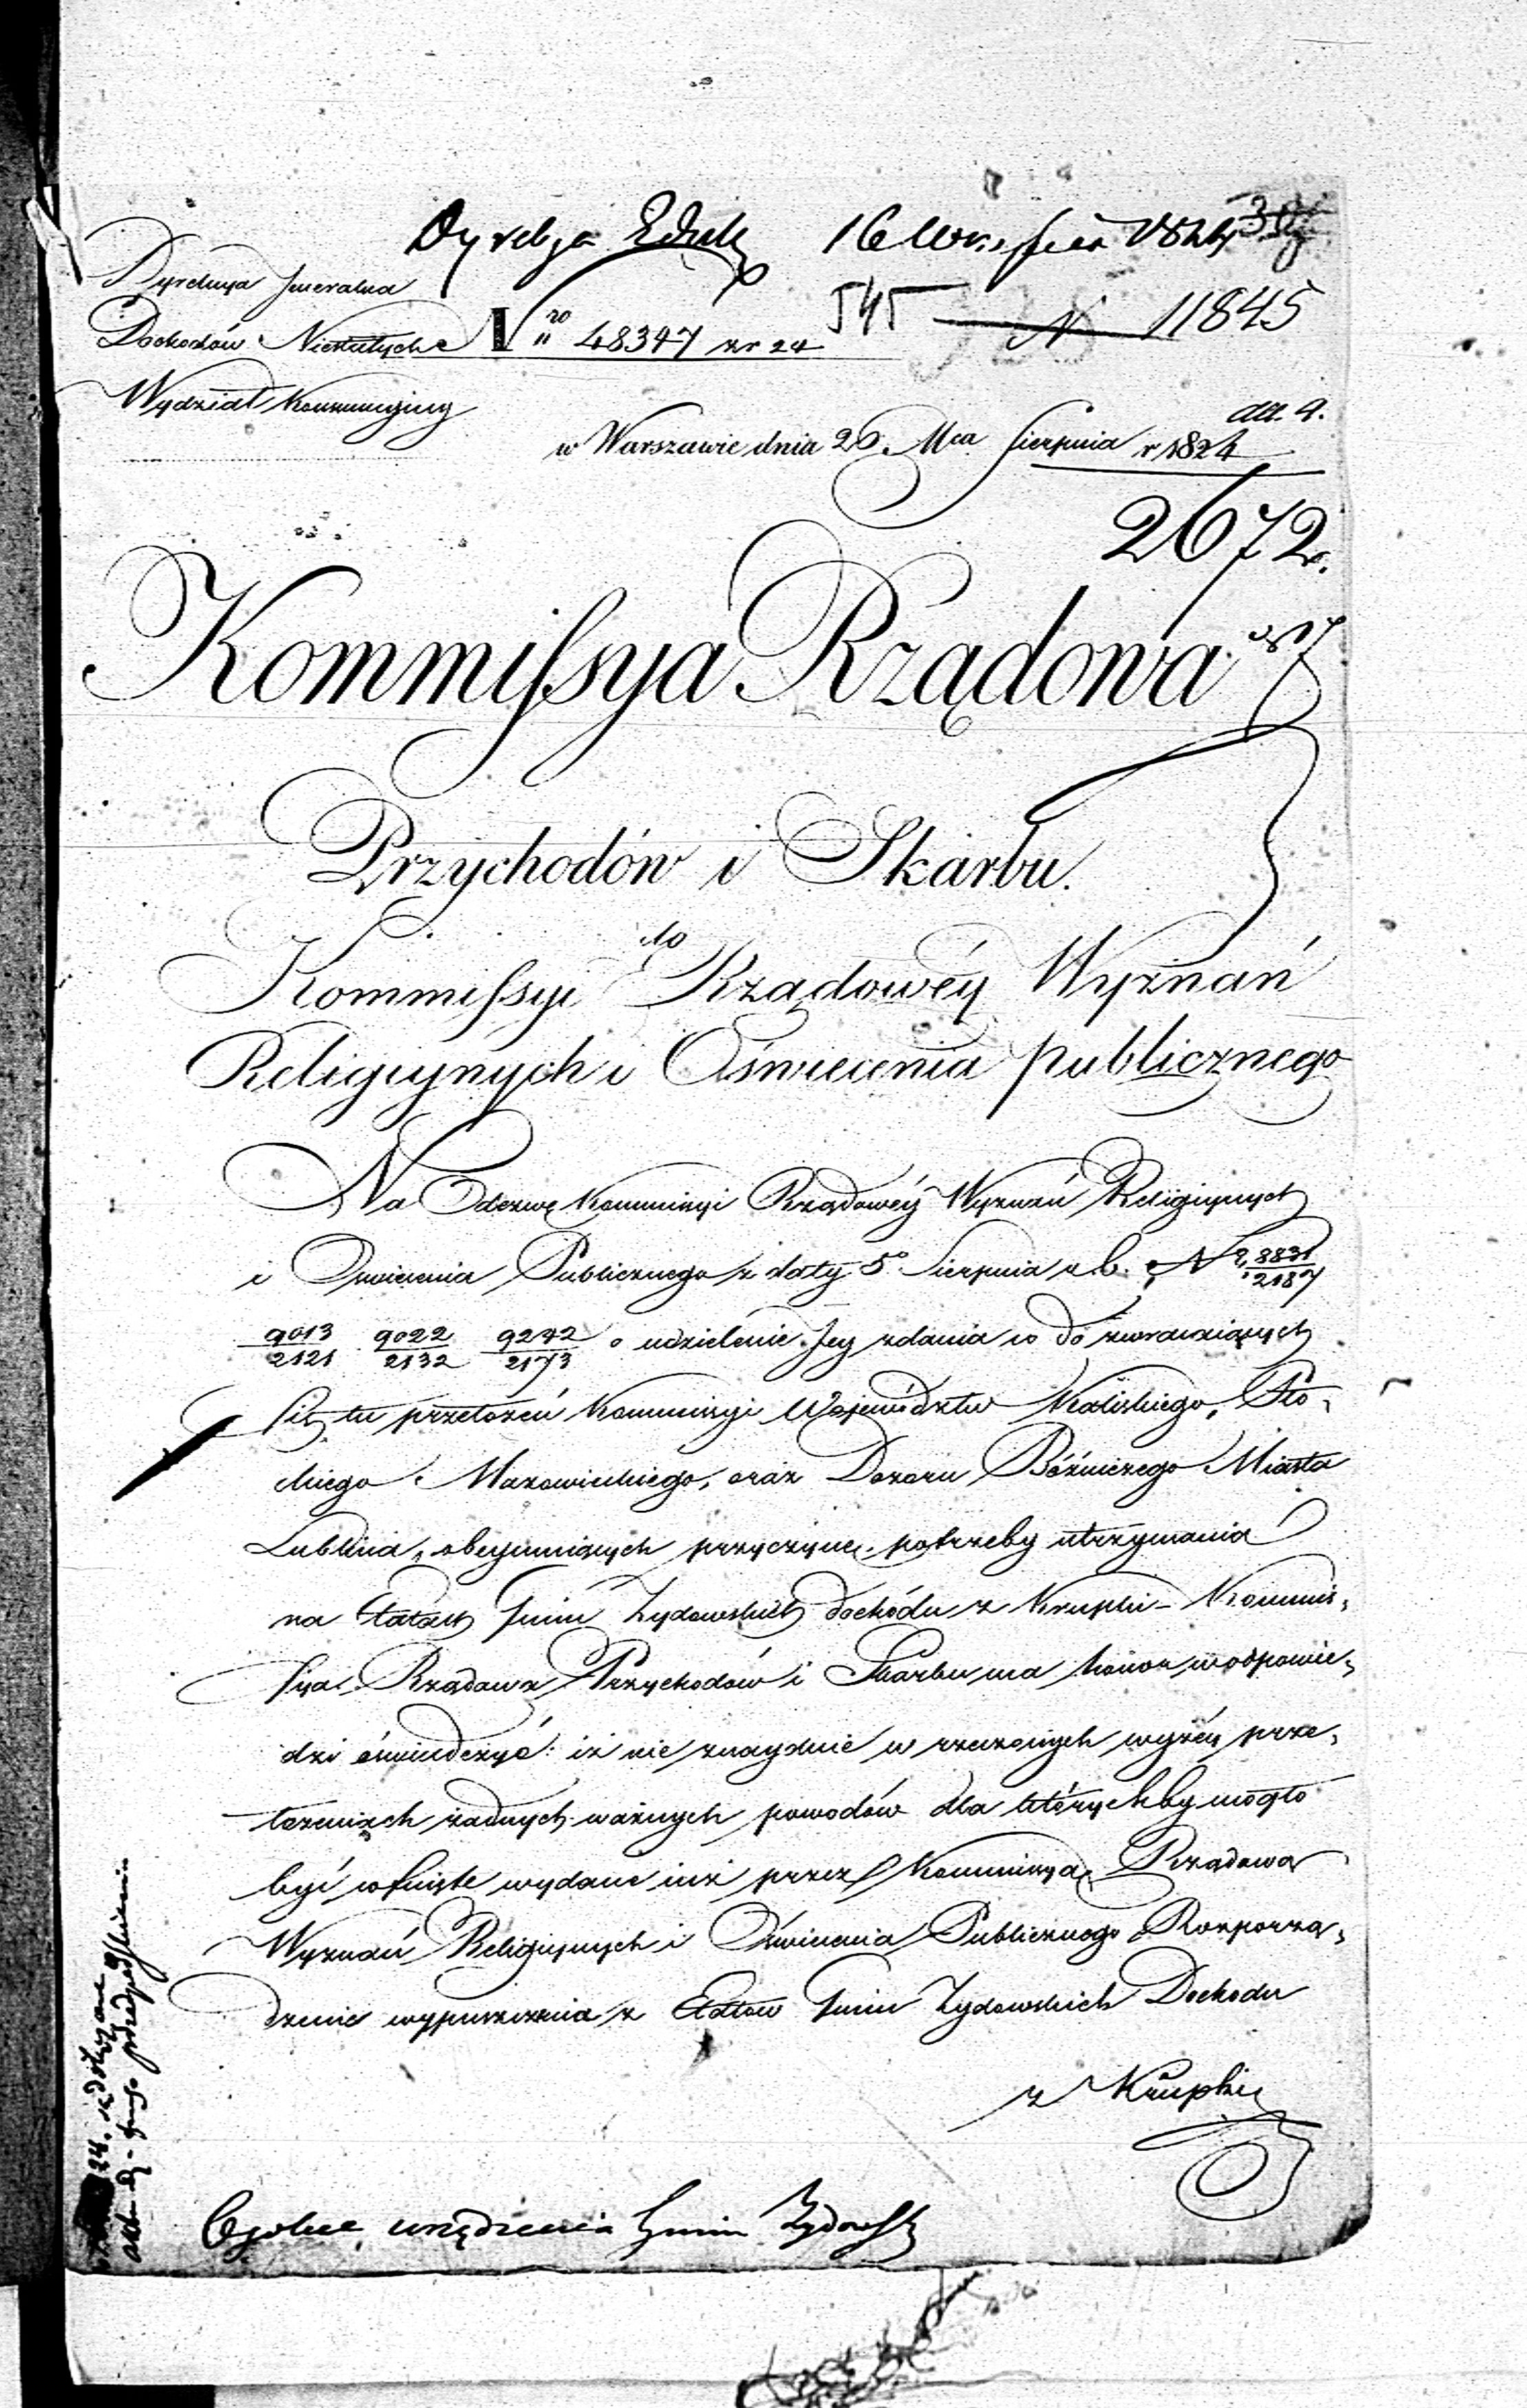 Dyrekcya Jeneralna
Dochodów Niestałych N ro 48347 xr 24
545 N 11845
Wydział Konsumcyjny
dd. 9.
w Warszawie dnia 26 Mca Sierpnia r 1824
2672.
Kommissya Rządowa
Przychodów i Skarbu.
do
Kommissyi Rządowéy Wyznań
Religiynych i Oświecenia publicznego
Na Odezwę Kommissyi Rządowéy Wyznań Religiynych
i Oswiecenia Publicznego z daty 5o Sierpnia r. b. N 8831/2187
9013/2121 9022/2132 9242/2173 o udzielenie Jey zdania co do zwracaiących
się tu przełożeń Kommissyi Województw Kaliskiego, Pło-
ckiego Mazowieckiego, oraz Dozoru Bóźniczego Miasta
Lublina, obeymuiących przyczynę potrzeby utrzymania
na Etatach Gmin Żydowskich dochodu z Krupki – Kommis-
sya Rządowa Przychodów i Skarbu ma honor w odpowie-
dzi oświadczyć: iż nie znayduie w rzeczonych wyżéy prze-
łożeniach żadnych ważnych powodów dla którychby mogło
być cofnięte wydane iuż przez Kommissyą Rządową
Wyznań Religiynych i Oświecenia Publicznego Rozporzą-
dzenie wypuszczenia z Etatów Gmin Żydowskich Dochodu
z Krupki
urządzenia Gmin Żydowsk